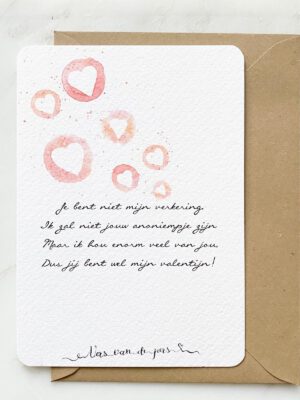 Je bent niet mijn verkering,
Ik zal niet jouw anoniempje zijn
Maar ik hou enorm veel van jou,
Dus jij bent wel mijn valentijn!
van de